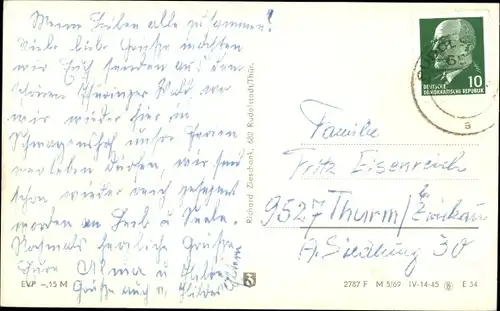 Meine Lieben alle zusammen!
Viele liebe Grüße möchten
wir Euch senden aus dem
schönen Thüringer Wald, wo
wir wieder hier in
unsre Ferien
verleben dürfen, wir sind
schon wieder reich gesegnet
worden an Leib u Seele.
Nochmals herzliche Grüße
Eure Alma u
Grüße auch v.
EVP -,15 M
Richard Zieschank, 682 Rudolstadt/Thür.
DEUTSCHE
DEMOKRATISCHE REPUBLIK
10
a
Familie
Fritz Eisenreich
9527 Thurm/Zwickau
A. Siedlung 30
2787 F M 5/69 IV-14-45 E 34